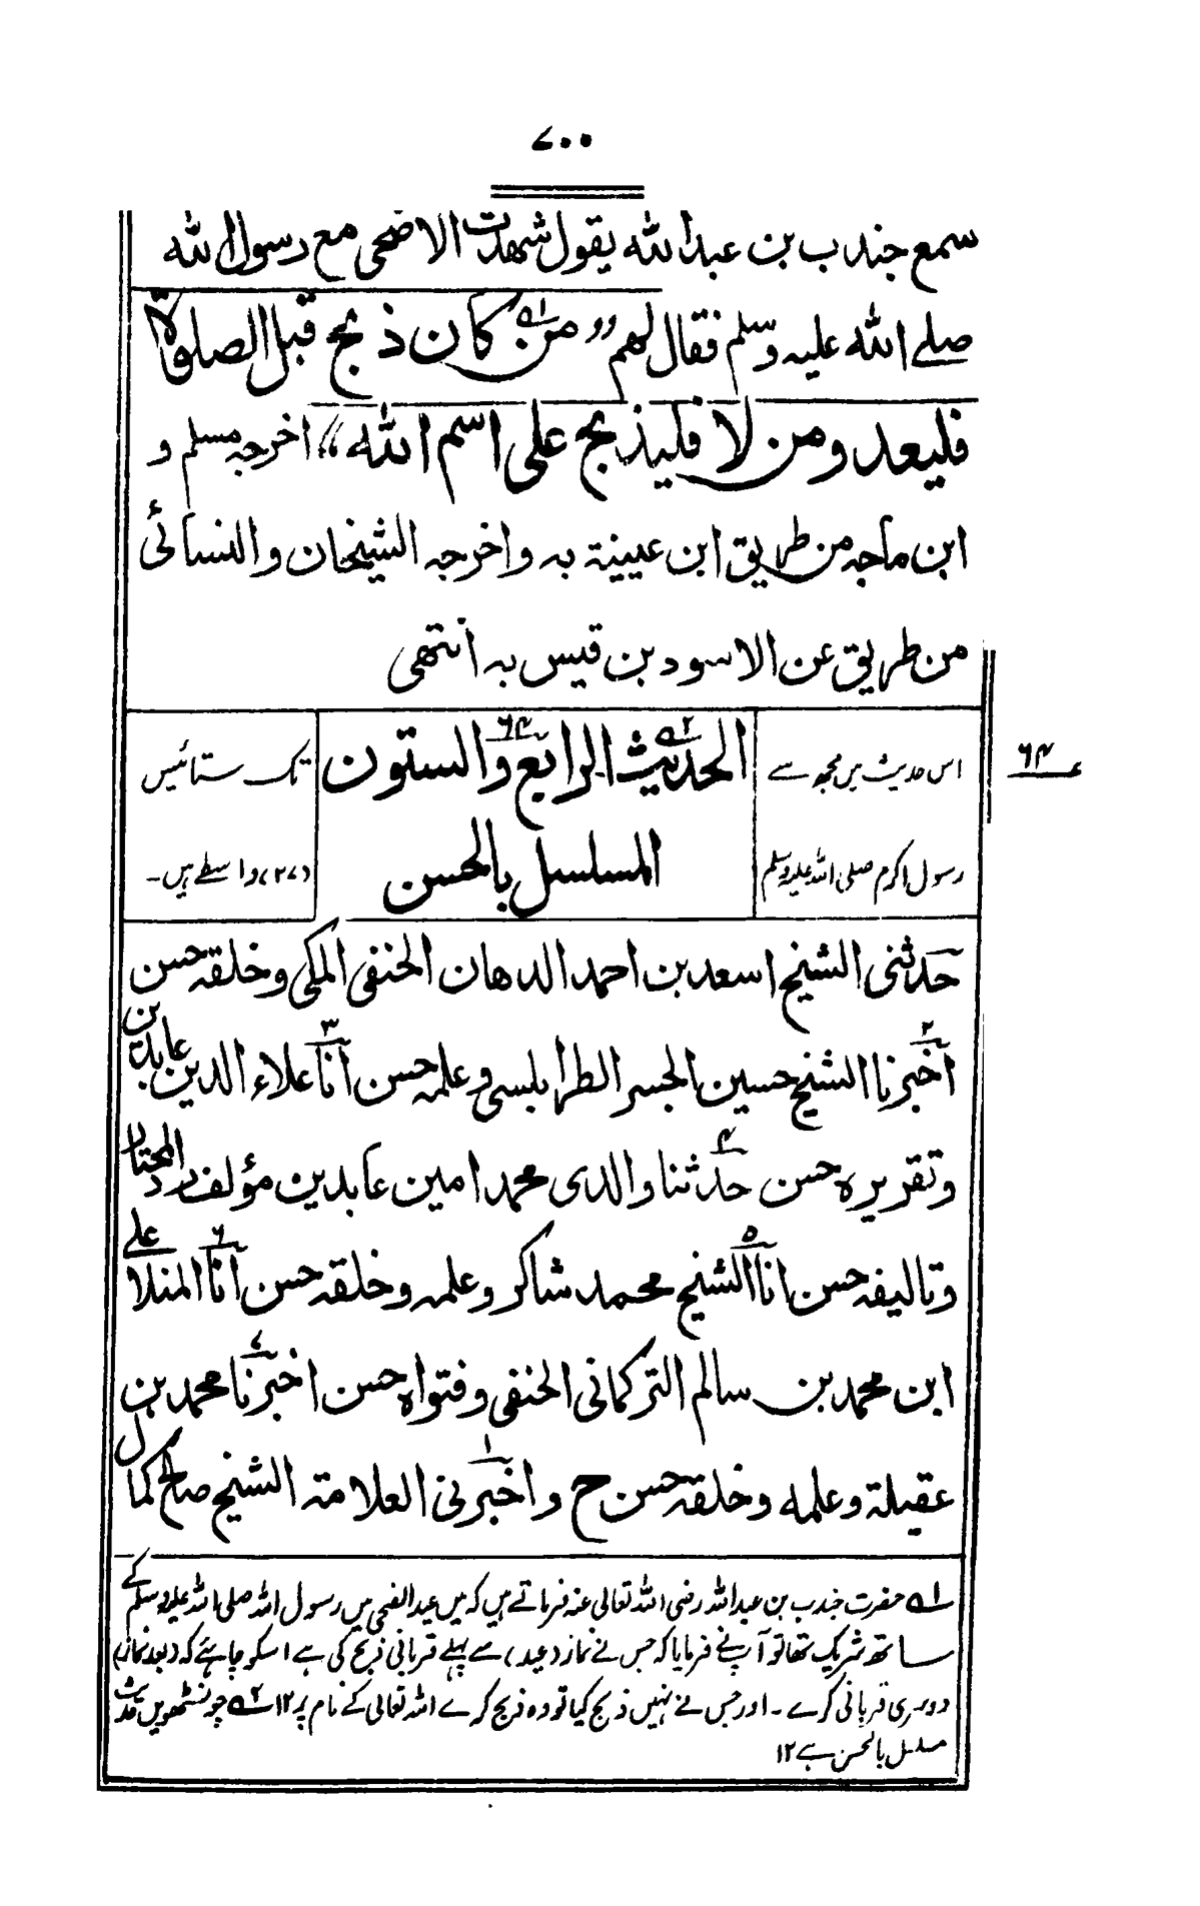 ۷۰۰
سمع جندب بن عبدالله يقول شهدت الاضحى مع رسول الله
صلے الله عليه وسلم فقال لهم ”من ۱ے كان ذبح قبل الصلوة
فليعد ومن لا فليذبح على اسم الله“ اخرجه مسلم و
ابن ماجه من طريق ابن عيينة به واخرجه الشيخان والنسائى
من طريق عن الاسود بن قيس به انتهى
۶۴
اس حدیث میں مجھ سے
رسول اکرم صلی اللہ علیہ وسلم
الحديث ۲ے الرابع ۶۴ والستون
المسلسل بالحسن
تک ستائیس
(۲۷) واسطے ہیں۔
حدثنى الشيخ اسعد بن احمد الدهان الحنفى المكى وخلقه حسن
۲ اخبرنا الشيخ حسين الجسر الطرابلسى وعلمه حسن ۳ انا علاء الدين بن عابدين
وتقريره حسن ۴ حدثنا والدى محمد امين عابدين مؤلف رد المحتار
وتاليفه حسن ۵ انا الشيخ محمد شاكر وعلمه وخلقه حسن ۶ انا المنلا على
ابن محمد بن سالم التركمانى الحنفى وفتواه حسن ۷ اخبرنا محمد بن
عقيلة وعلمه وخلقه حسن ح ۱ واخبرنى العلامة الشيخ صالح كمال
۱ے حضرت جندب بن عبداللہ رضی اللہ تعالی عنہ فرماتے ہیں کہ میں عیدالضحی میں رسول اللہ صلی اللہ علیہ وسلم کے
ساتھ شریک تھا تو آپ نے فرمایا کہ جس نے نماز (عید) سے پہلے قربانی ذبح کی ہے اسکو چاہئے کہ (بعد نماز)
دوسری قربانی کرے۔ اور جس نے نہیں ذبح کیا تو وہ ذبح کرے اللہ تعالی کے نام پر ۱۲ ۲ے چونسٹھویں حدیث
مسلسل بالحسن ہے ۱۲